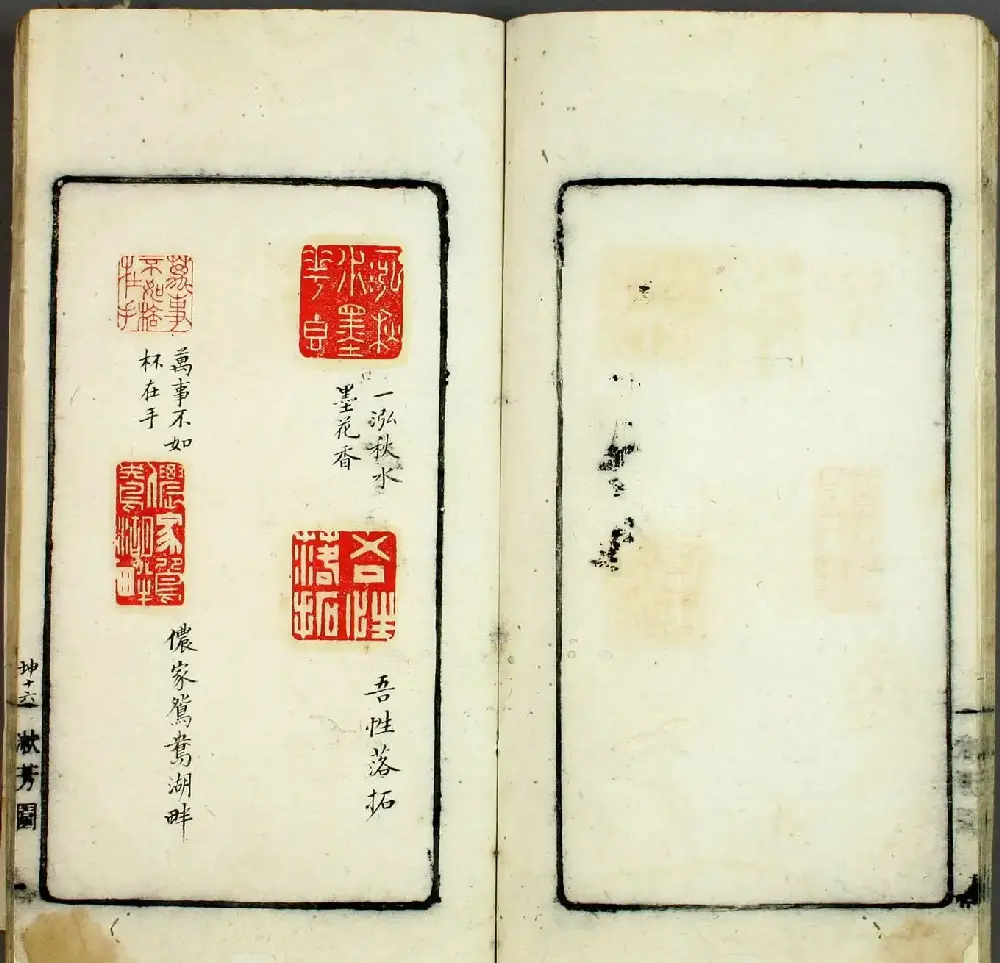 一泓秋
水墨
花香
一泓秋水
墨花香
吾性
落拓
吾性落拓
萬事
不如桮
在手
萬事不如
杯在手
儂家鴛
鴦湖畔
儂家鴛鴦湖畔
坤十六
漱芳